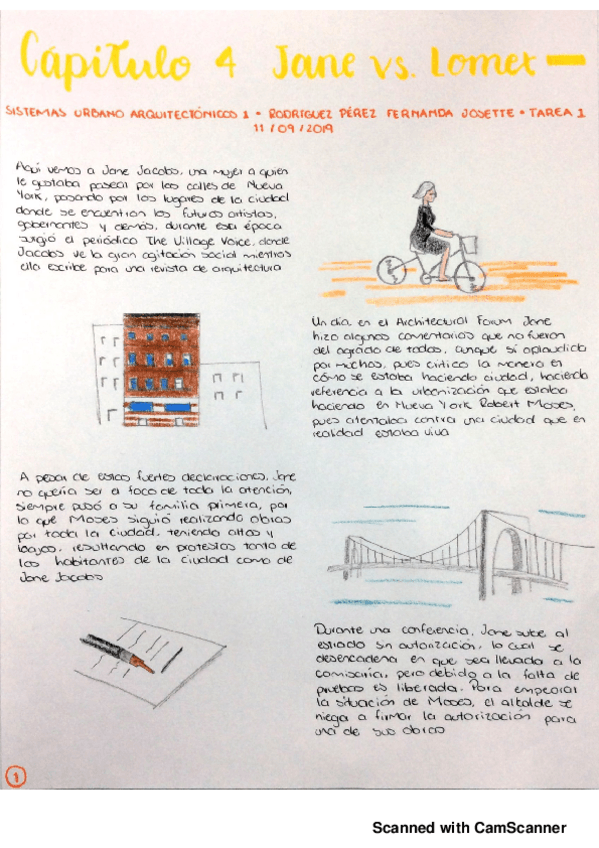 Capítulo 4 Jane vs. Lomex
SISTEMAS URBANO ARQUITECTÓNICOS 1 • RODRÍGUEZ PÉREZ FERNANDA JOSETTE • TAREA 1
11/09/2019
Aquí vemos a Jane Jacobs, una mujer a quien
le gustaba pasear por las calles de Nueva
York, pasando por los lugares de la ciudad
donde se encuentran los futuros artistas,
gobernantes y demás, durante esta época
surgió el periódico The Village Voice, donde
Jacobs ve la gran agitación social mientras
ella escribe para una revista de arquitectura
Un día, en el Architectural Forum Jane
hizo algunos comentarios que no fueron
del agrado de todos, aunque sí aplaudida
por muchos, pues critico la manera en
cómo se estaba haciendo ciudad, haciendo
referencia a la urbanización que estaba
haciendo en Nueva York Robert Moses,
pues atentaba contra una ciudad que en
realidad estaba viva
A pesar de estas fuertes declaraciones, Jane
no quería ser a foco de toda la atención,
siempre pusó a su familia primero, por
lo que Moses siguió realizando obras
por toda la ciudad, teniendo altos y
bajos, resultando en protestas tanto de
los habitantes de la ciudad como de
Jane Jacobs
Durante una conferencia, Jane sube al
estrado sin autorización, lo cual se
desencadena en que sea llevada a la
comisaría, pero debido a la falta de
pruebas es liberada. Para empeorar
la situación de Moses, el alcalde se
niega a firmar la autorización para
una de sus obras
1
Scanned with CamScanner